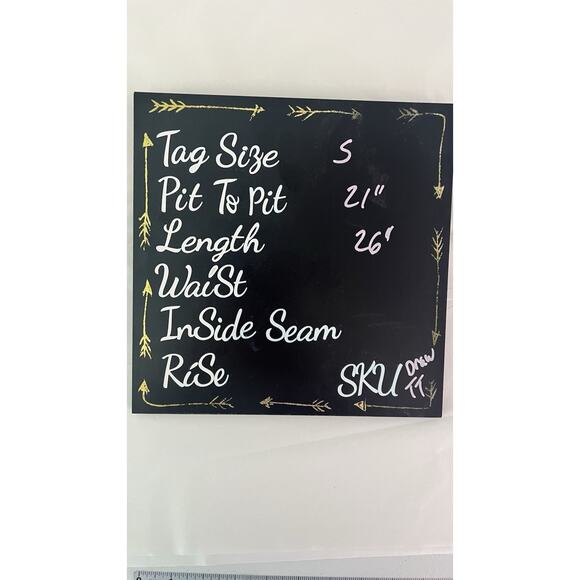 Tag Size S
Pit To Pit 21"
Length 26"
WaiSt
InSide Seam
RiSe
SKU DREW TT